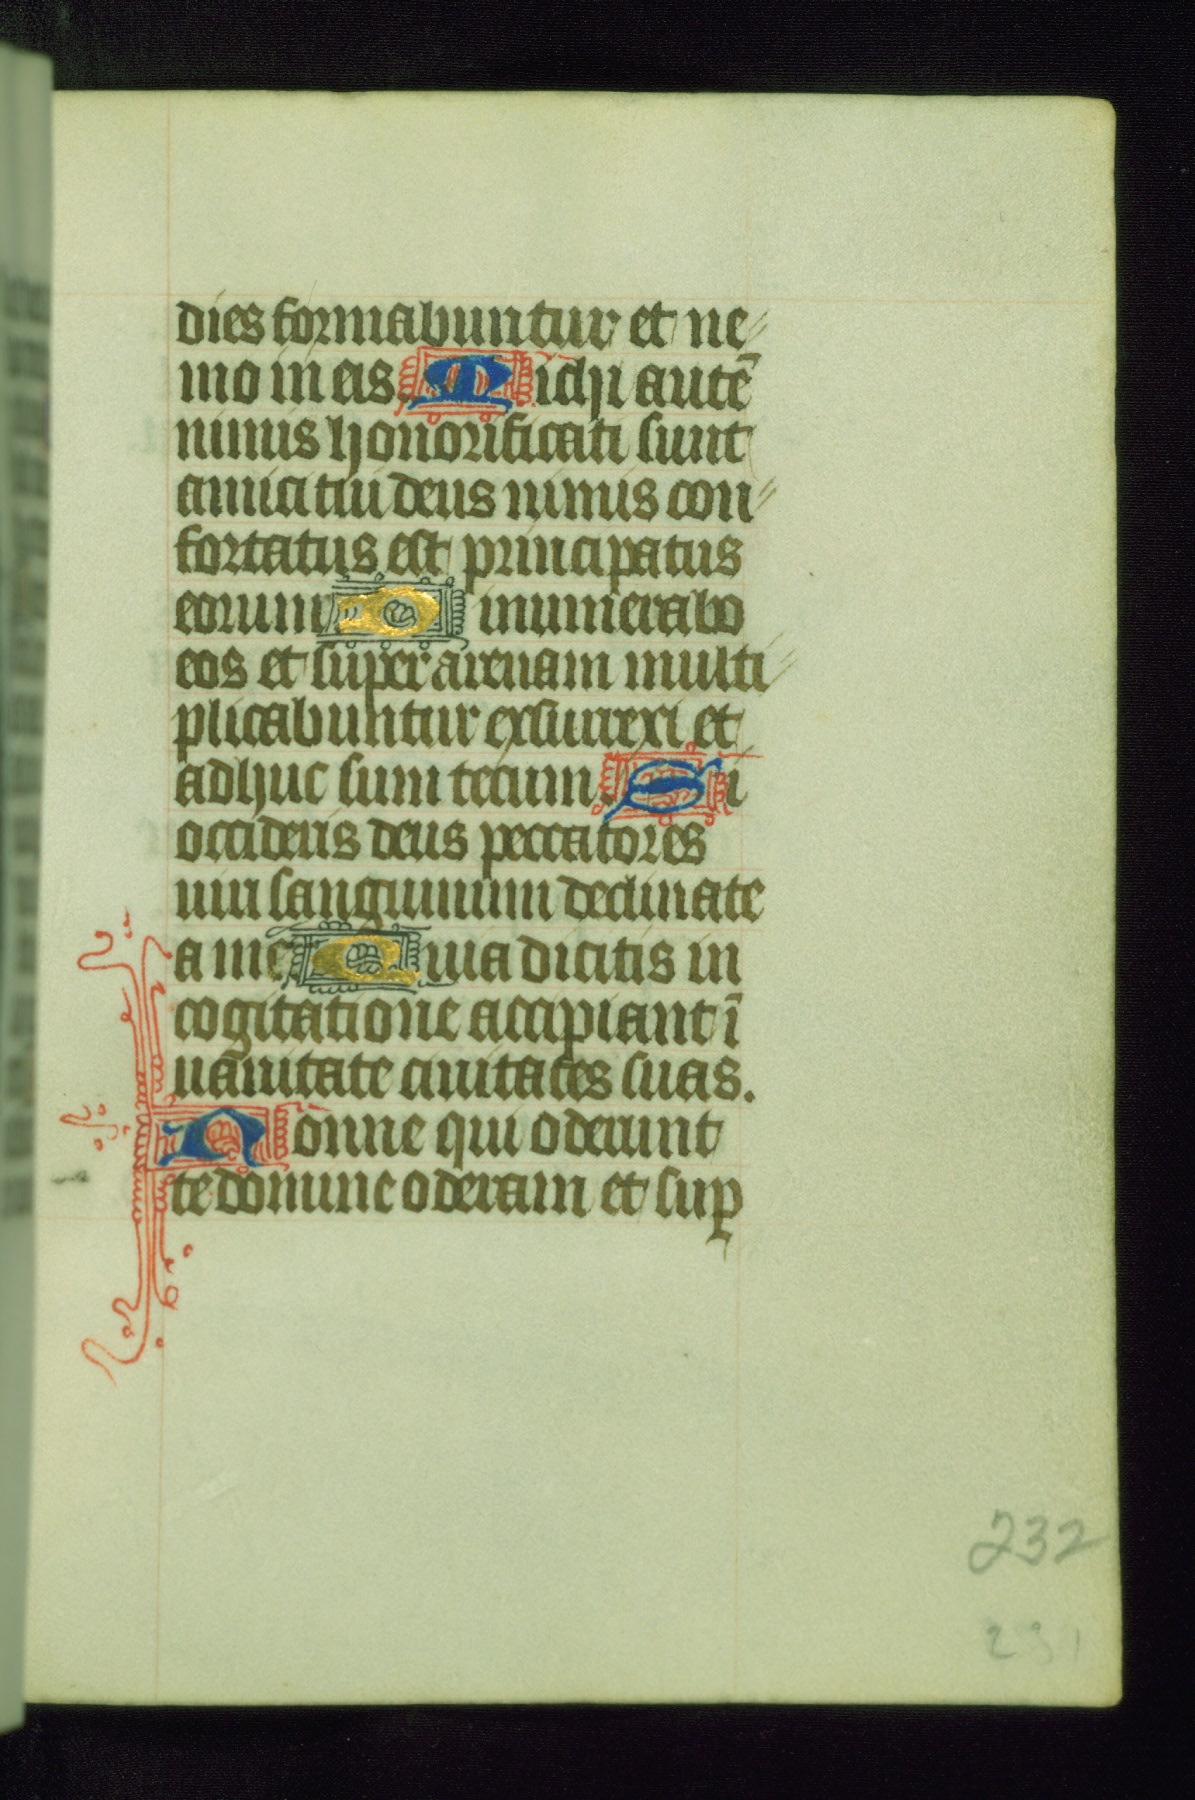 dies formabuntur et ne⸗
mo in eis. Michi autē
nimis honorificati sunt
amici tui deus nimis con⸗
fortatus est principatus
eorum. Dinumerabo
eos et super arenam multi⸗
plicabuntur exsurrexi et
adhuc sum tecum. Si
occideris deus peccatores
uiri sanguinum declinate
a me. Quia dicitis in
cogitatione accipiant ī
uanitate ciuitates suas.
Nonne qui oderunt
te domine oderam et suꝑ
232
231